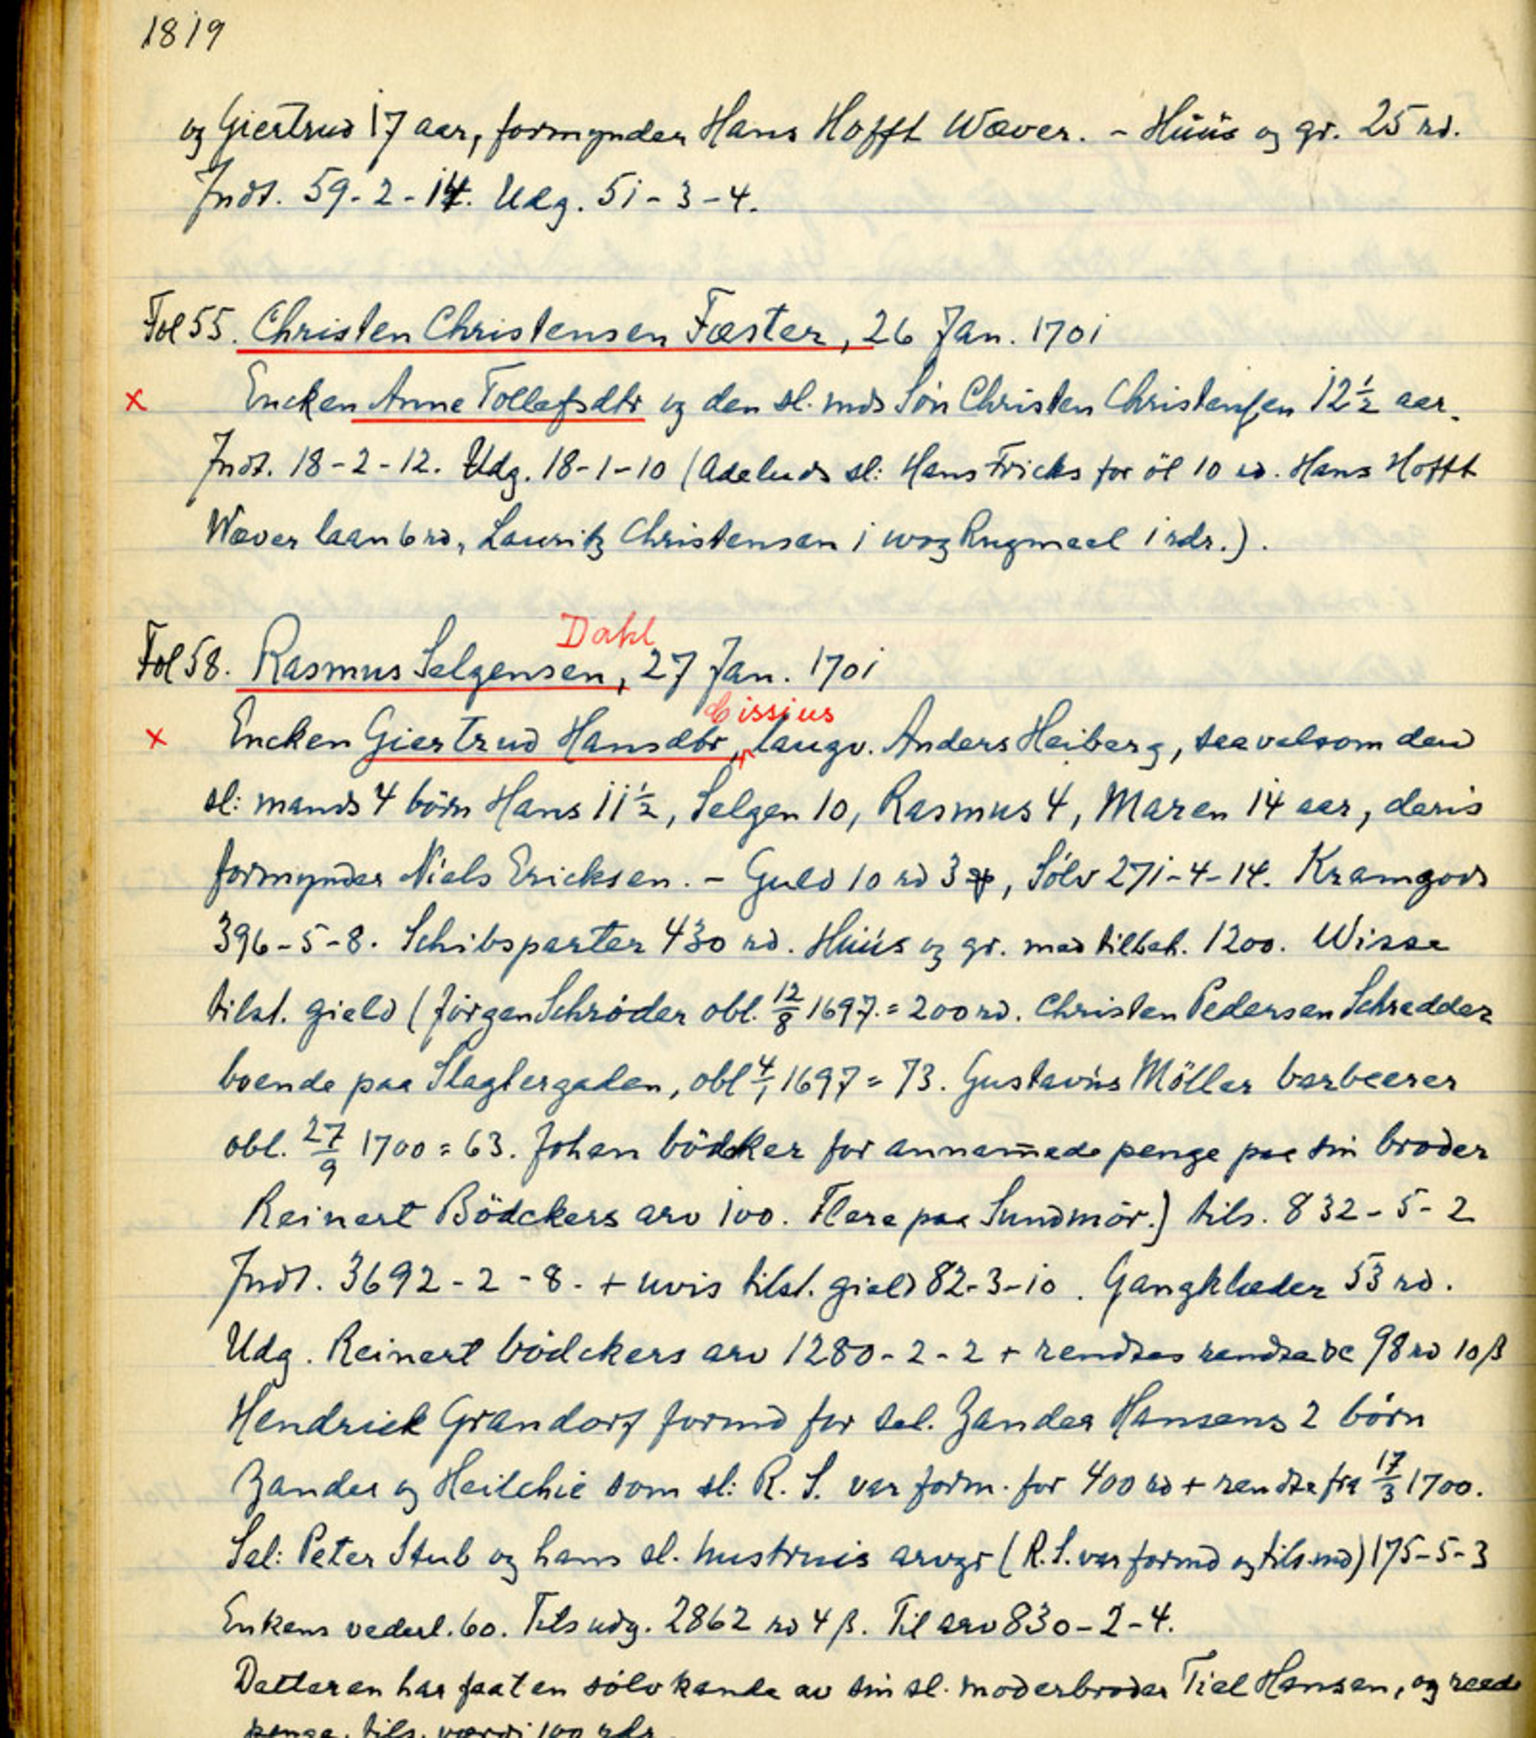 1819
og Giertrud 17 aar, formynder Hans Hofft Wæver. - Huus og gr. 25 rd.
Indt. 59-2-14. Udg. 51-3-4.
Fol 55. Christen Christensen Fæster, 26 Jan. 1701
x Encken Anne Tollefsdtr og den sl. mds Søn Christen Christensen 12½ aar.
Indt. 18-2-12. Udg. 18-1-10 (Adeluds sl: Hans Fricks for öl 10 rd. Hans Hofft
Wæver laan 6 rd, Lauritz Christensen 1 wog Rugmeel 1 rdr.).
Dahl
Fol 58. Rasmus Selgensen, 27 Jan. 1701
Cissius
x Encken Giertrud Hansdtr, laugv. Anders Heiberg, saavelsom den
sl: mands 4 börn Hans 11½, Selgen 10, Rasmus 4, Maren 14 aar, deris
formynder Niels Ericksen. - Guld 10 rd 3 , Sölv 271-4-14. Kramgods
396-5-8. Schibsparter 430 rd. Huus og gr. med tilbeh. 1200. Wisse
tilst. gield (Jörgen Schröder obl. 12/8 1697 = 200 rd. Christen Pedersen Schredder
boende paa Slagtergaden, obl 4/1 1697 = 73. Gustavus Möller barbeerer
obl. 27/9 1700 = 63. Johan bödker for annamede penge paa sin broder
Reinert Bödckers arv 100. Flere paa Sundmör.) tils. 832-5-2
Indt. 3692-2-8. + uvis tilst. gield 82-3-10. Gangklæder 53 rd.
Udg. Reinert bödckers arv 1280-2-2 + rendtes rendte 98 rd 10 ß
Hendrick Grandorf formd for sal. Zander Hansens 2 börn
Zander og Heilchie som sl: R. S. var form. for 400 rd + rendte fra 17/3 1700.
Sal: Peter Stub og hans sl. hustruis arvgr (R.S. var formd og tils.md) 175-5-3
Enkens vederl. 60. Tils udg. 2862 rd 4 ß. Til arv 830-2-4.
Datteren har faat en sölv kande av sin sl. moderbroder Tiel Hansen, og reede
penge, tils. værdi 100 rdr.